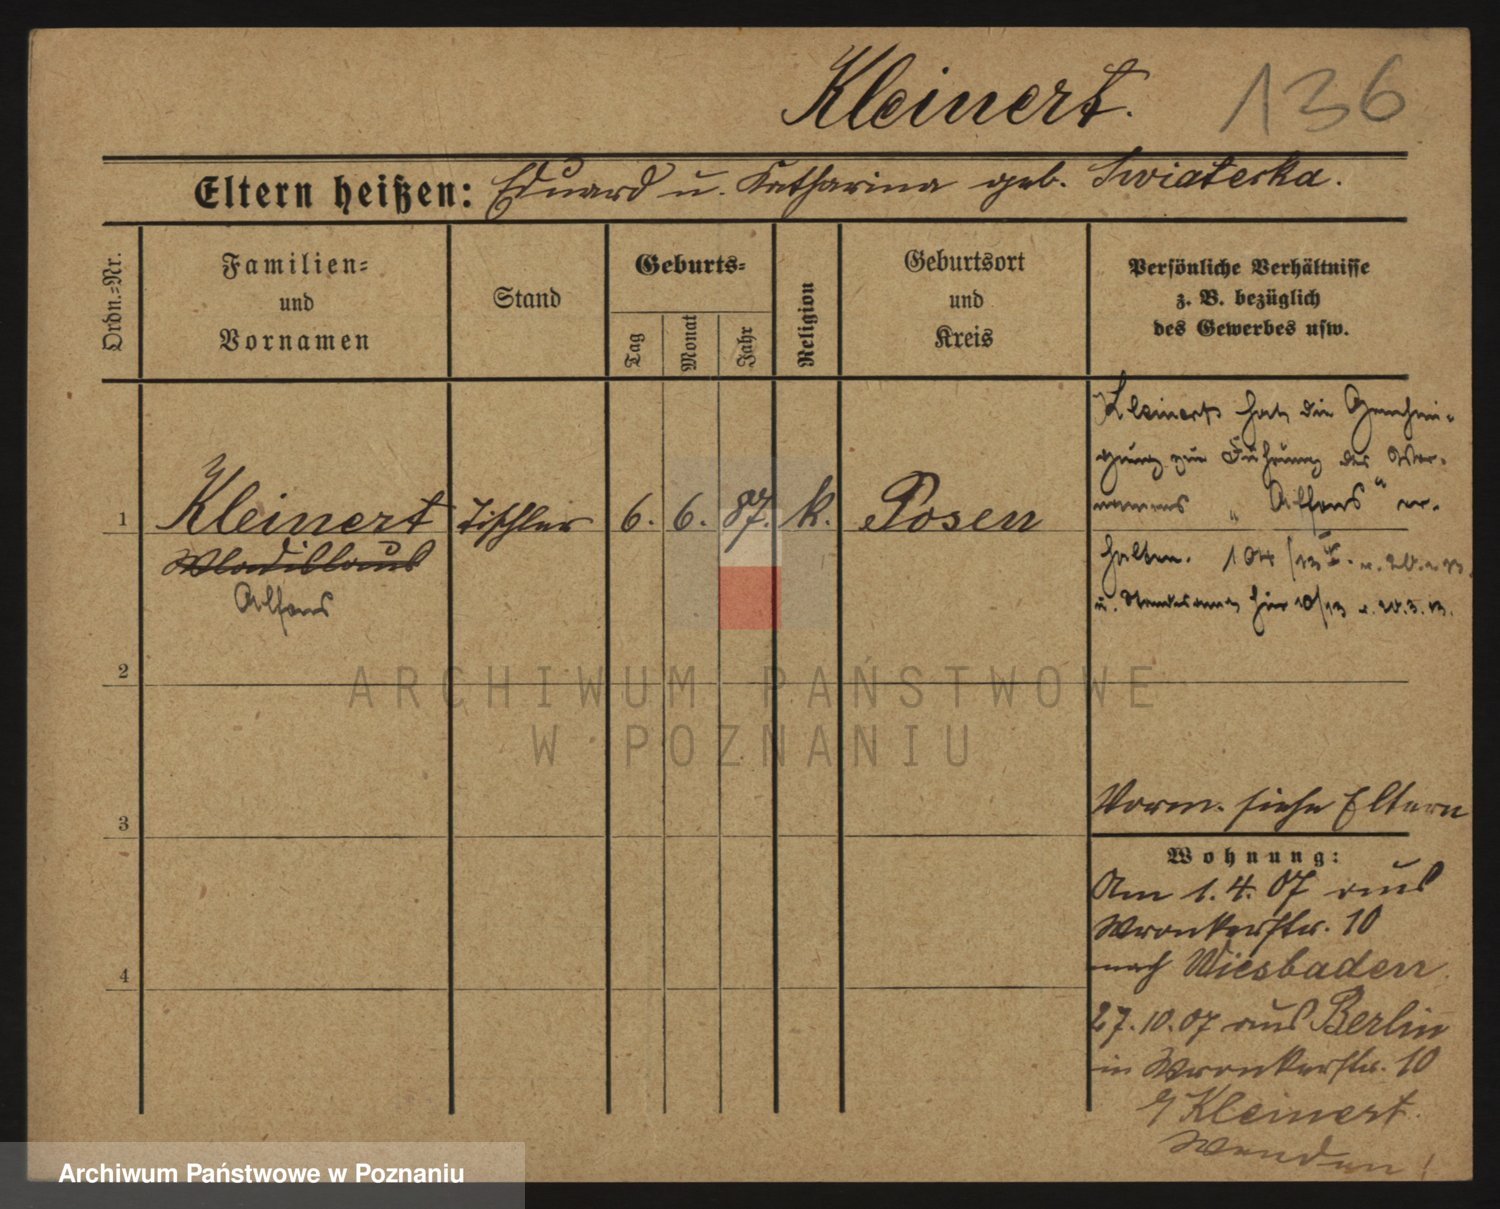 Kleinert. 136
Eltern heißen: Eduard u. Katharina geb. Swiaterka.
Ordn.-Nr.
Familien-
und
Vornamen
Stand
Geburts-
Tag
Monat
Jahr
Religion
Geburtsort
und
Kreis
Persönliche Verhältnisse
z. B. bezüglich
des Gewerbes usw.
1 Kleinert Tischler 6. 6. 87. k. Posen
Wladislaus
Alfons
Kleinert hat die Genehmi-
gung zur Führung des Vor-
namens „Alfons" er-
halten. 104/13
u. Standesamt hier 10/13
2
3
4
Vorm. siehe Eltern
Wohnung:
Am 1.4.07 aus
Wronkerstr. 10
nach Wiesbaden.
27.10.07 aus Berlin
in Wronkerstr. 10
Kleinert.
Wenden!
ARCHIWUM PAŃSTWOWE
W POZNANIU
Archiwum Państwowe w Poznaniu